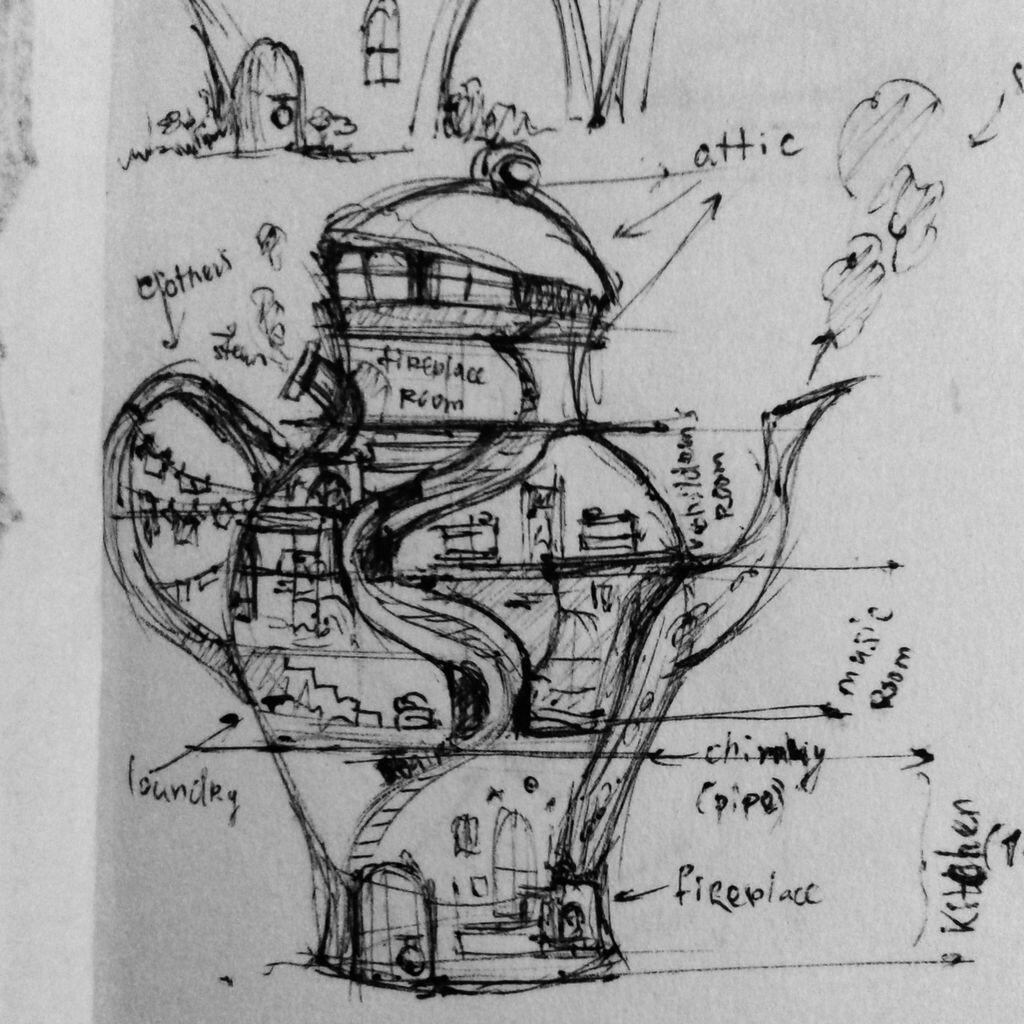 attic
clothers
steam
fireplace
Room
children's
Room
music
Room
laundry
chimney
(pipe)
fireplace
Kitchen